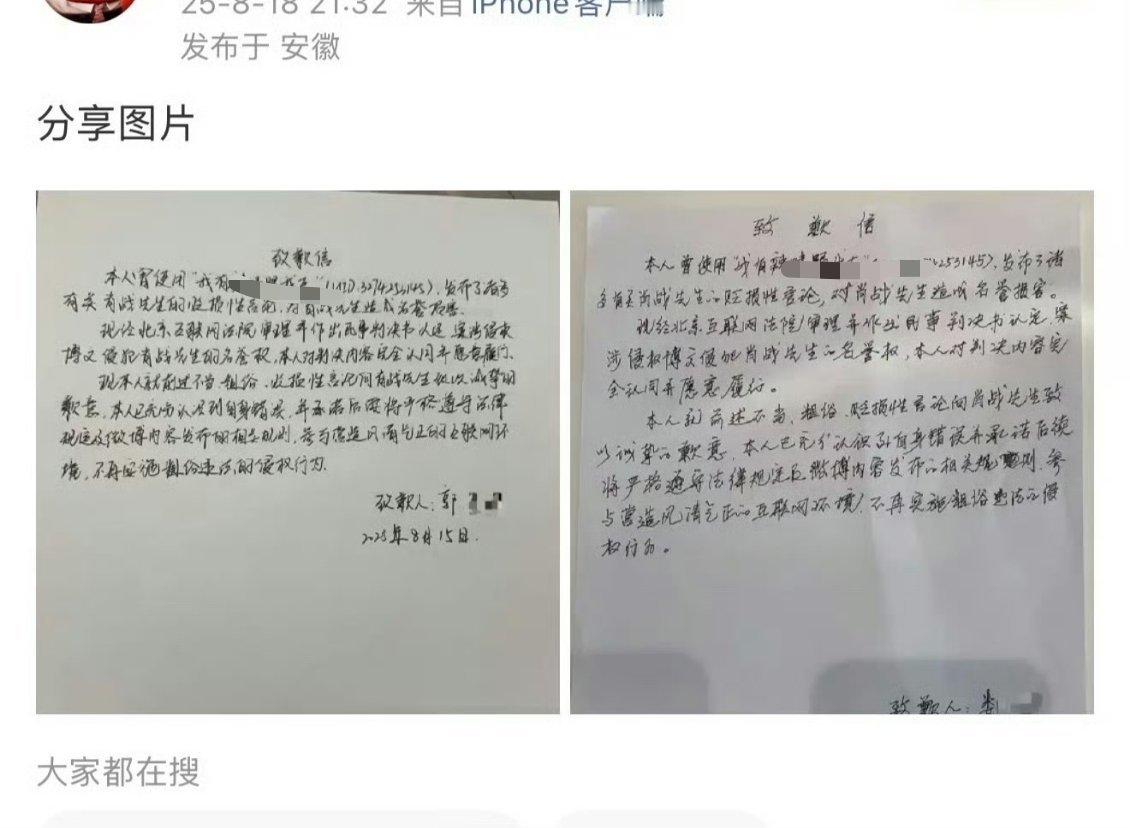 25-8-18 21:32 来自 iPhone客户端
发布于 安徽
分享图片
致歉信
本人曾使用"我有
发布了诸多
有关肖战先生的贬损性言论,对肖战先生造成名誉损害。
现经北京互联网法院审理并作出民事判决书认定,案涉侵权
博文侵犯肖战先生的名誉权,本人对判决内容完全认同并愿意履行。
现本人就前述不当、粗俗、贬损性言论向肖战先生致以诚挚的
歉意,本人已充分认识到自身错误,并承诺后续将严格遵守法律
规定及微博内容发布的相关规则,参与营造风清气正的互联网环
境,不再实施粗俗违法的侵权行为.
致歉人:郭
2025年8月15日.
致歉信
本人曾使用"战有
2533145),发布了诸
多有关肖战先生的贬损性言论,对肖战先生造成名誉损害。
现经北京互联网法院审理并作出民事判决书认定,案
涉侵权博文侵犯肖战先生的名誉权,本人对判决内容完
全认同并愿意履行。
本人就前述不当、粗俗、贬损性言论向肖战先生致
以诚挚的歉意,本人已充分认识到自身错误并承诺后续
将严格遵守法律规定及微博内容发布的相关规则,参
与营造风清气正的互联网环境,不再实施粗俗违法的侵
权行为。
致歉人:
大家都在搜